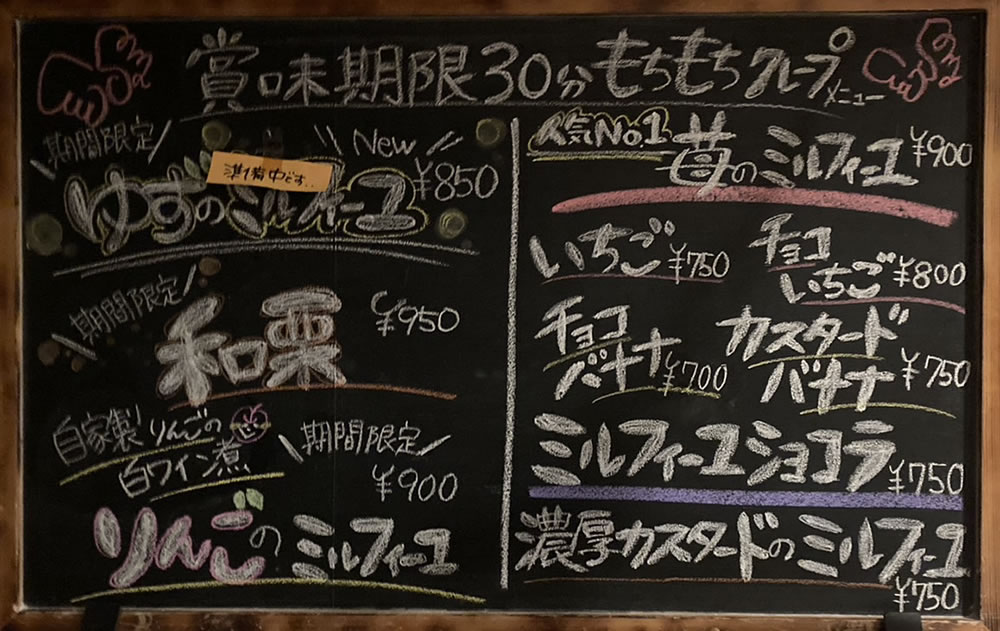 賞味期限30分もちもちクレープメニュー
期間限定
New
準備中です..
ゆずのミルフィーユ ¥850
期間限定
和栗 ¥950
自家製りんごの
白ワイン煮
期間限定
¥900
りんごのミルフィーユ
人気No.1
苺のミルフィーユ ¥900
いちご ¥750
チョコ
いちご ¥800
チョコ
バナナ ¥700
カスタード
バナナ ¥750
ミルフィーユショコラ ¥750
濃厚カスタードのミルフィーユ
¥750